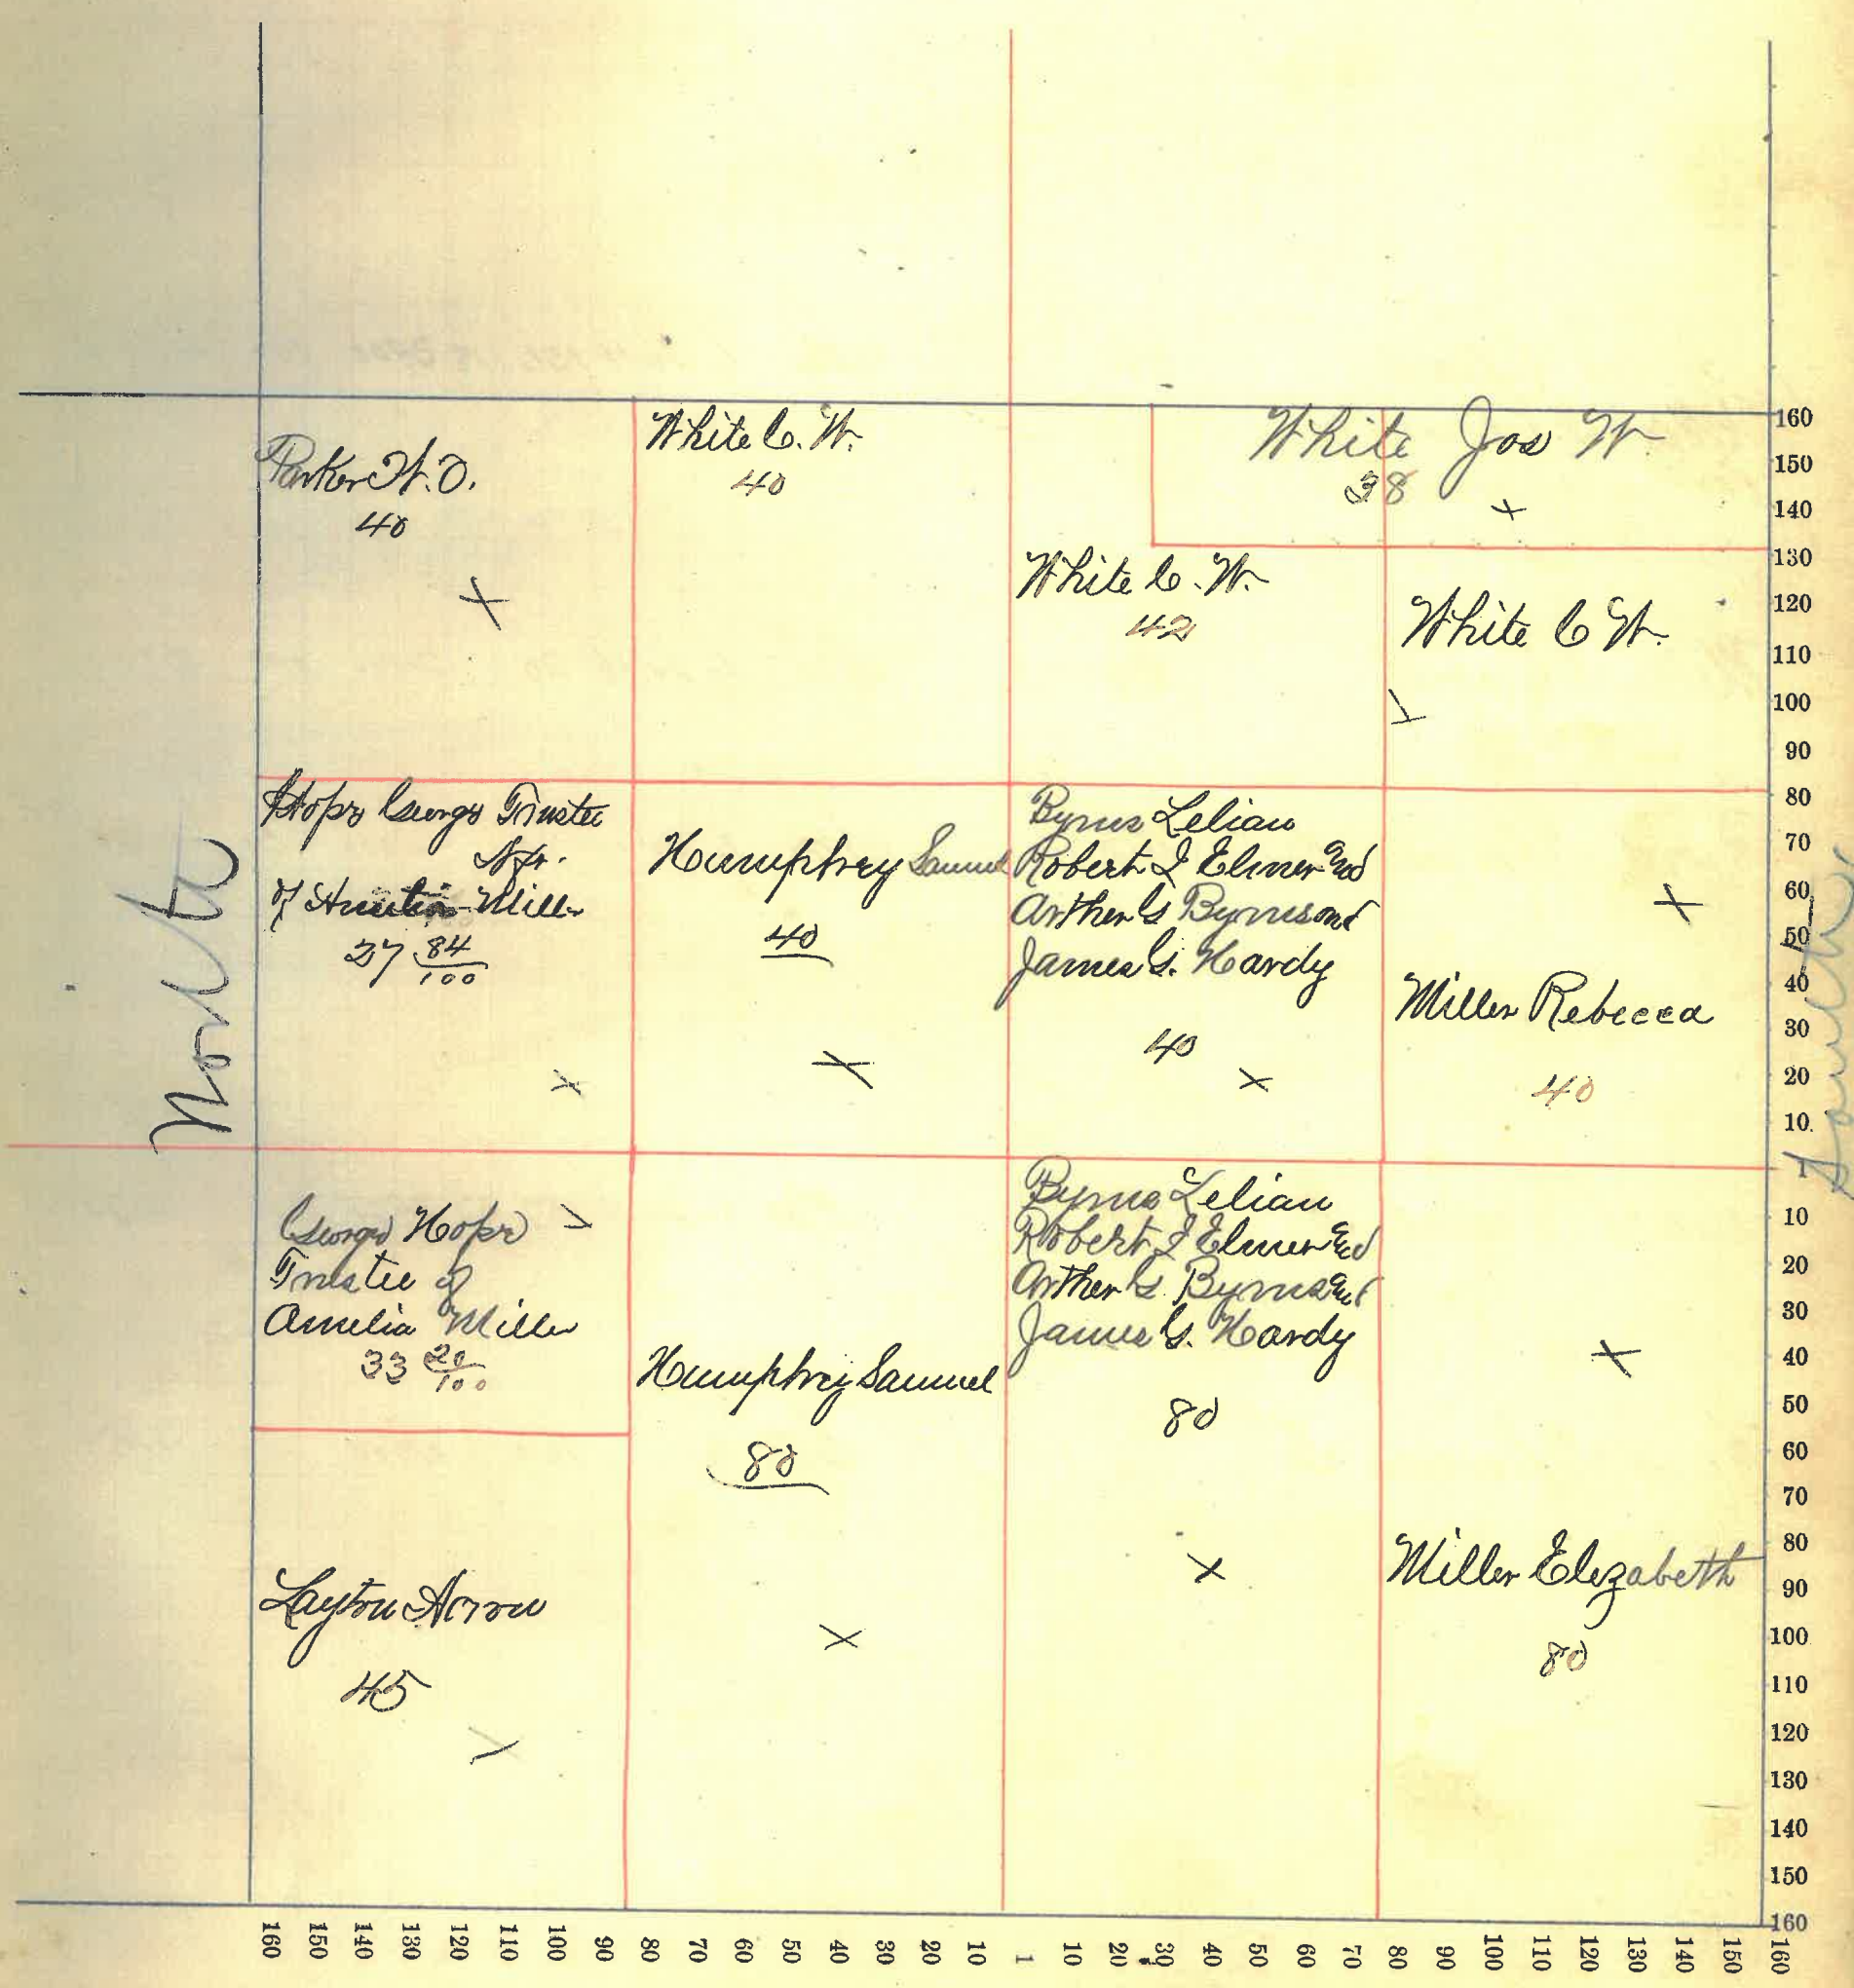 North
South
White C. W.
40
White Jos W
38
Parker W. O.
40
White C. W.
42
White C W.
Hope George Trustee
of Miller
27 84/100
Humphrey Samuel
40
Byrns Lelian
Robert I Elmer and
Arther G Byrns and
James G. Hardy
40
Miller Rebecca
40
George Hope
Trustee of
Amelia Miller
33 20/100
Humphrey Samuel
80
Byrns Lelian
Robert I Elmer and
Arther G. Byrns and
James G. Hardy
80
Layton
45
Miller Elezabeth
80
160
150
140
130
120
110
100
90
80
70
60
50
40
30
20
10
1
10
20
30
40
50
60
70
80
90
100
110
120
130
140
150
160
160 150 140 130 120 110 100 90 80 70 60 50 40 30 20 10 1 10 20 30 40 50 60 70 80 90 100 110 120 130 140 150 160